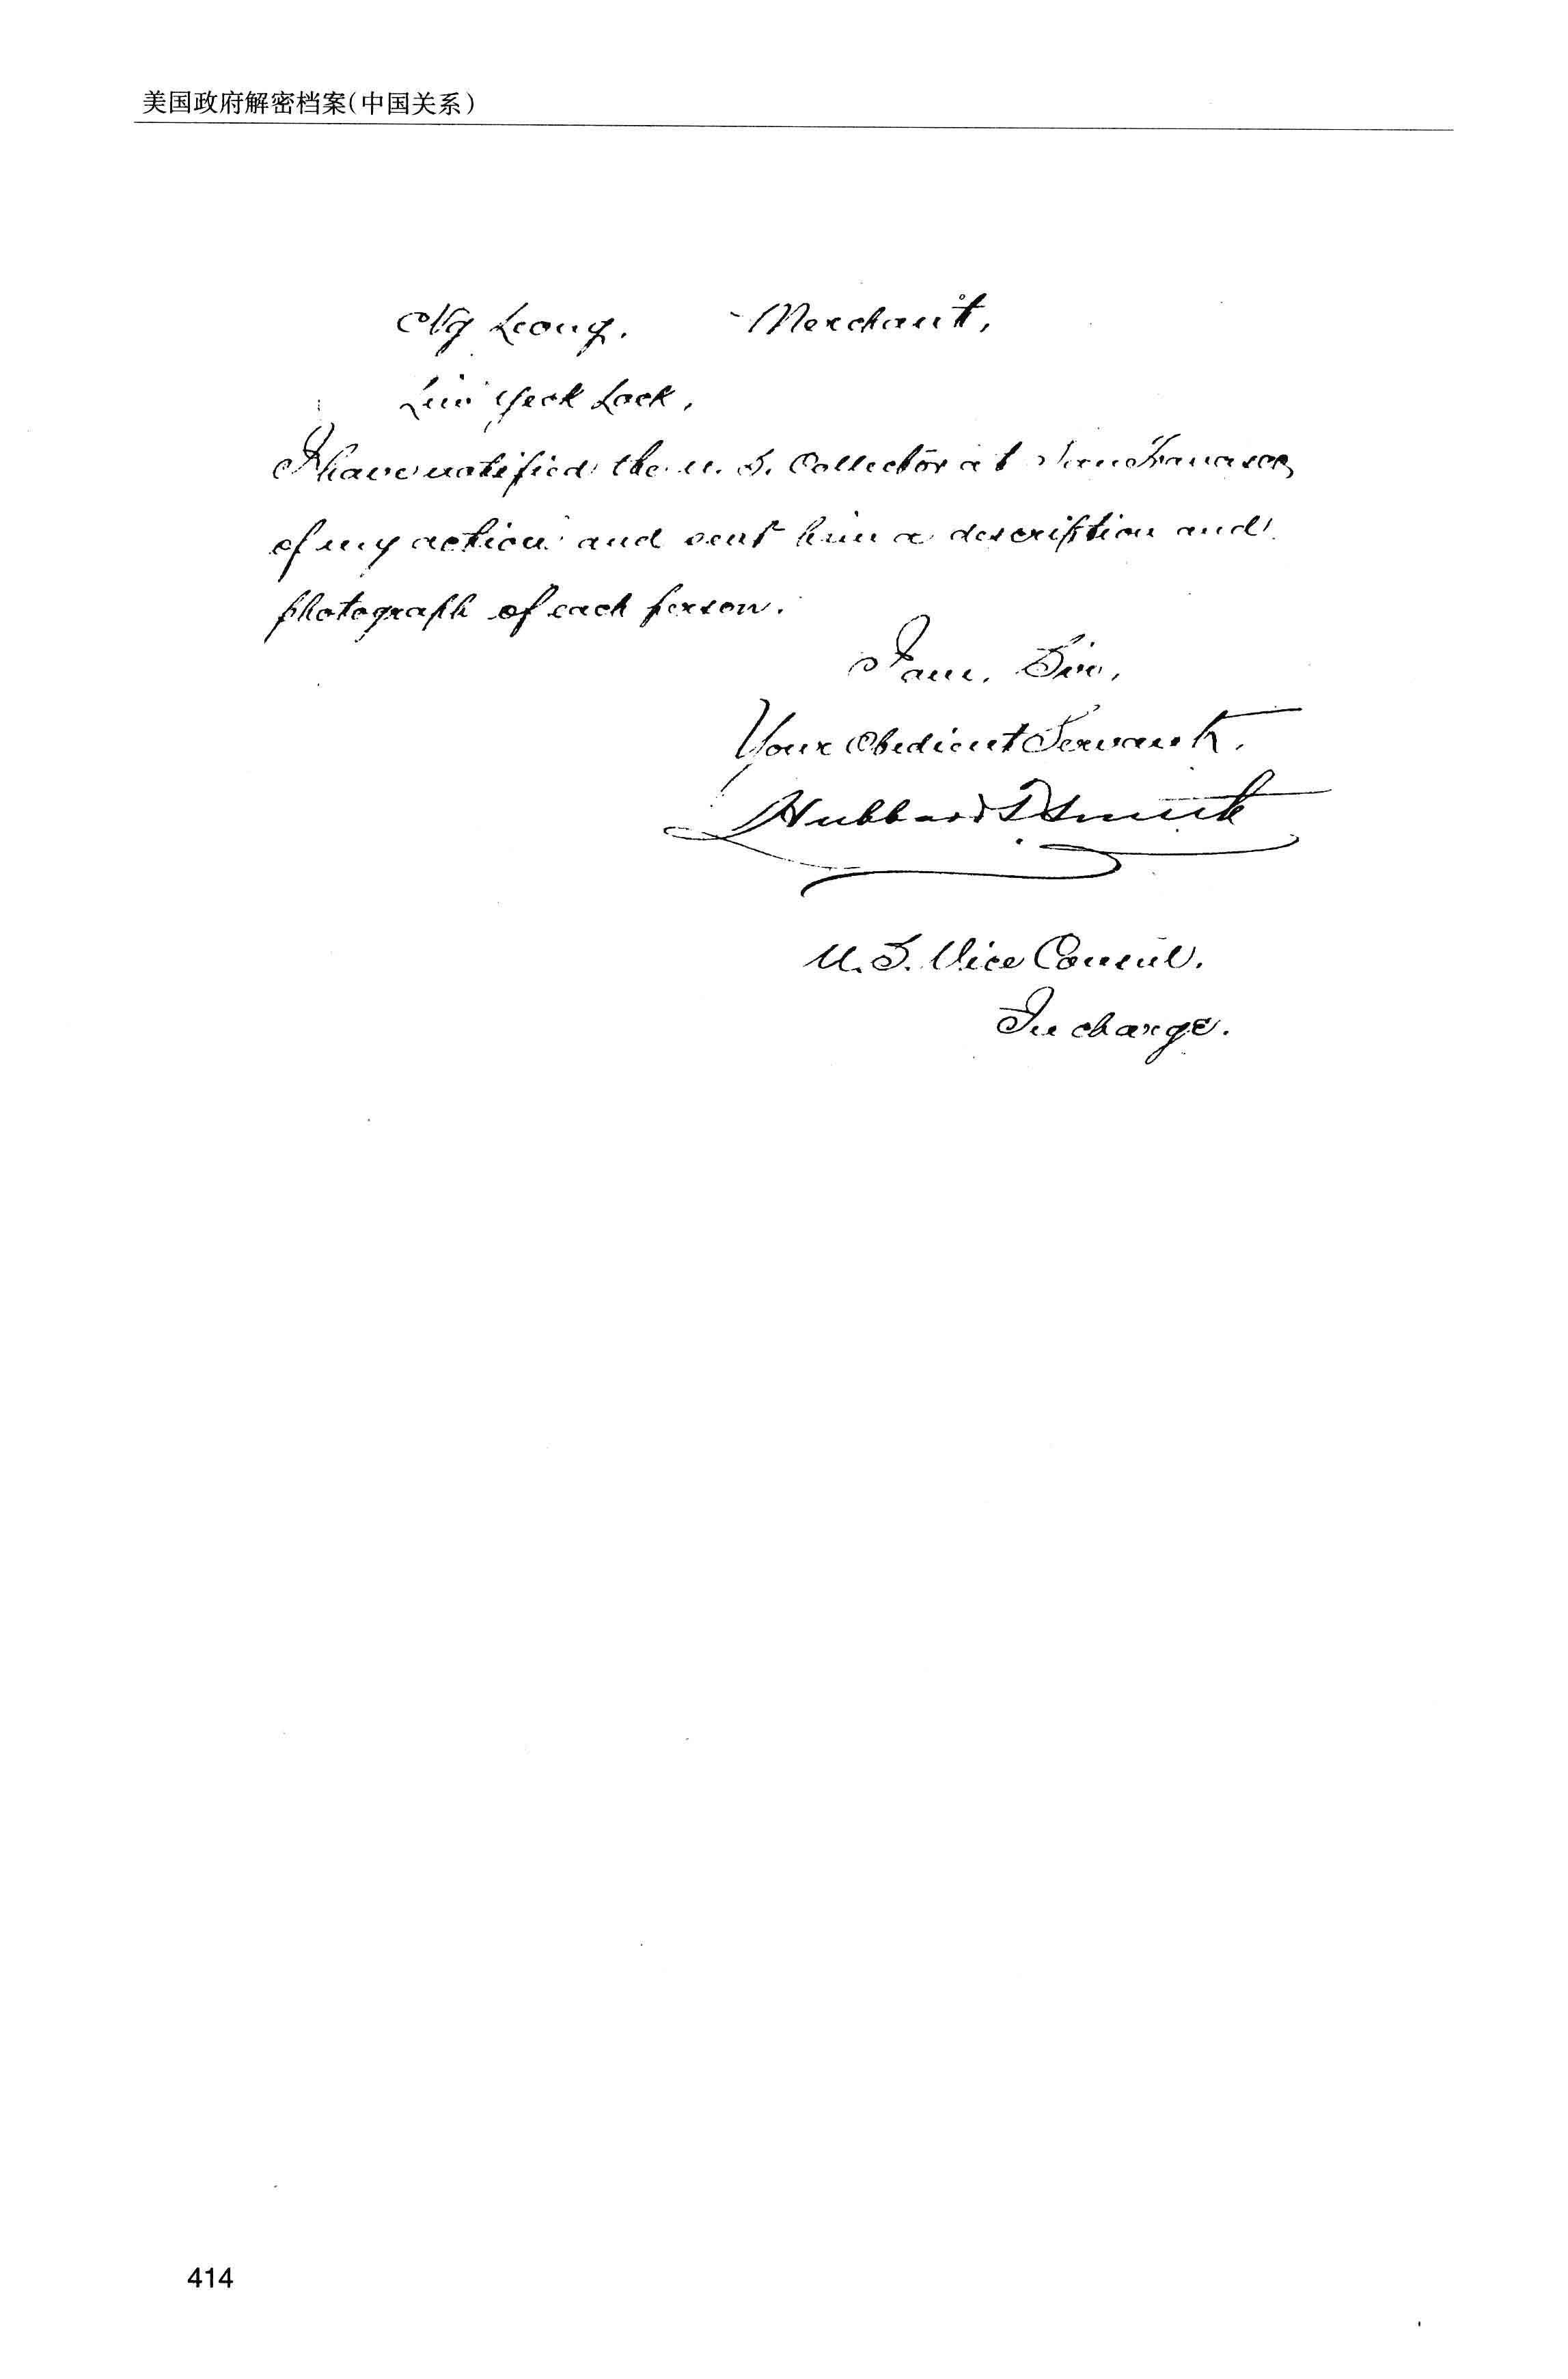 美国政府解密档案(中国关系)
Ng Leong. - Merchant,
Lim Yeck Lock,
I have notified the U. S. Collector at San Francisco,
of my action and sent him a description and
photograph of each person.
I am, Sir,
Your Obedient Servant,
Hubbard T. Smith
U. S. Vice Consul.
In charge.
414